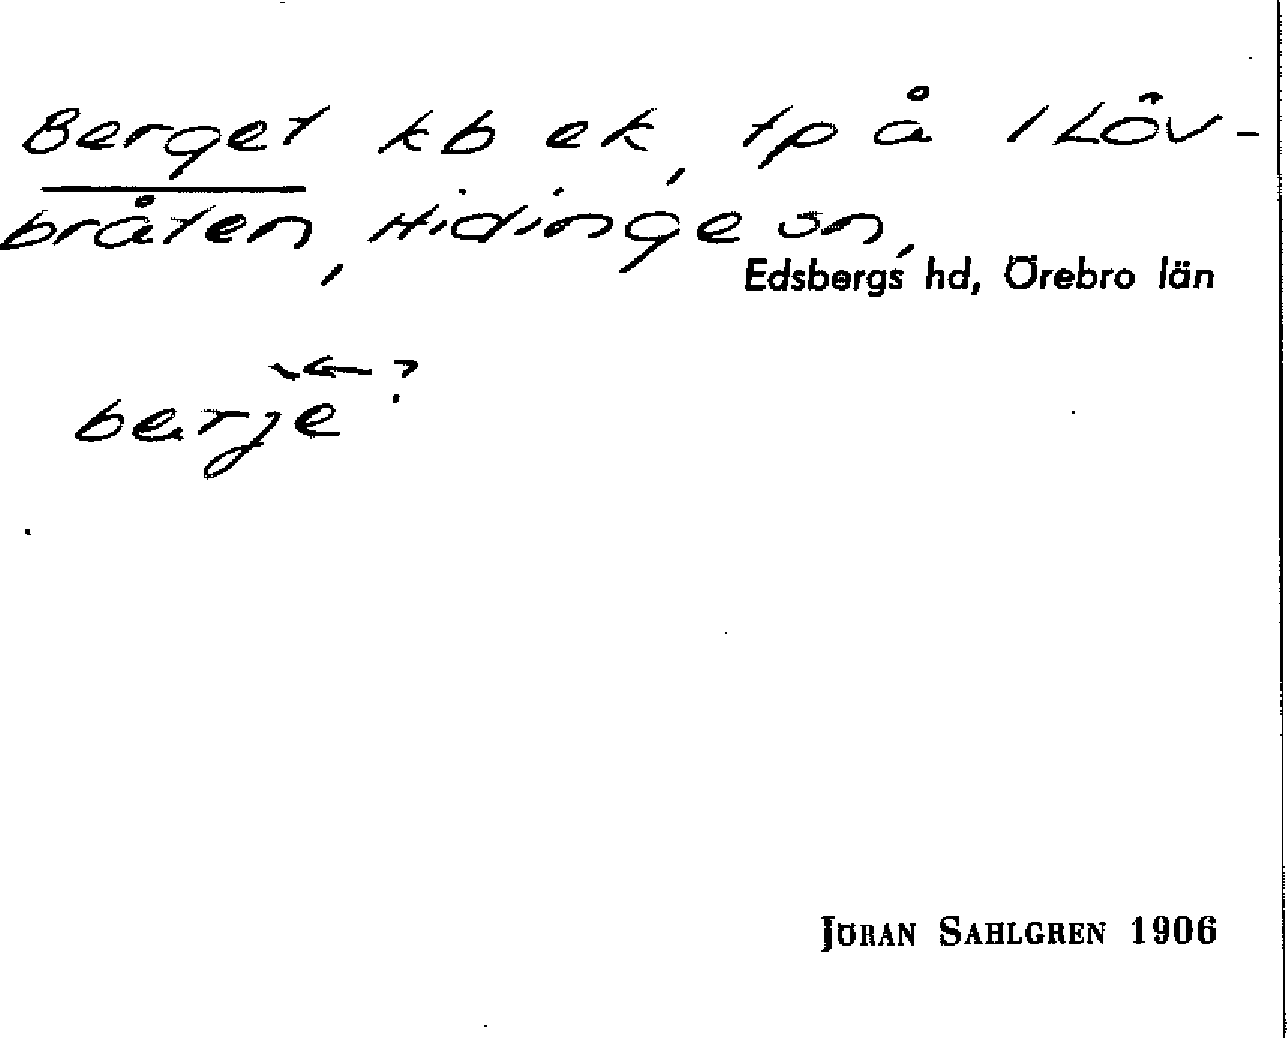 Berget kb ek, tp å 1 Löv-
bråten, Hidinge sn,
Edsbergs hd, Örebro län
berje ?
JÖRAN SAHLGREN 1906